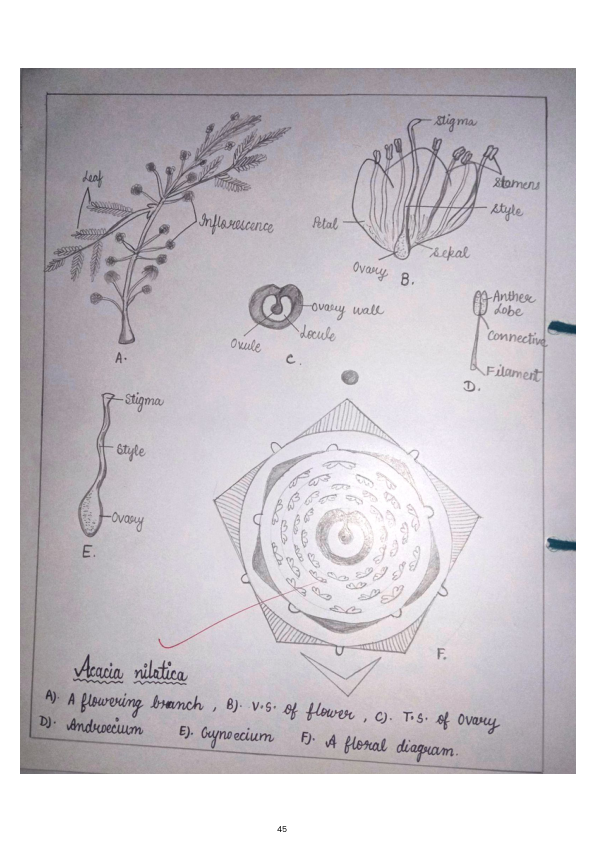 Leaf
Inflorescence
A.
Stigma
Stamens
Style
Petal
Sepal
Ovary
B.
Ovary wall
Locule
Ovule
C.
Anther
Lobe
Connective
Filament
D.
Stigma
Style
Ovary
E.
F.
Acacia nilatica
A). A flowering branch , B). V.S. of flower , C). T.S. of Ovary
D). Androecium E). Gynoecium F). A floral diagram.
45